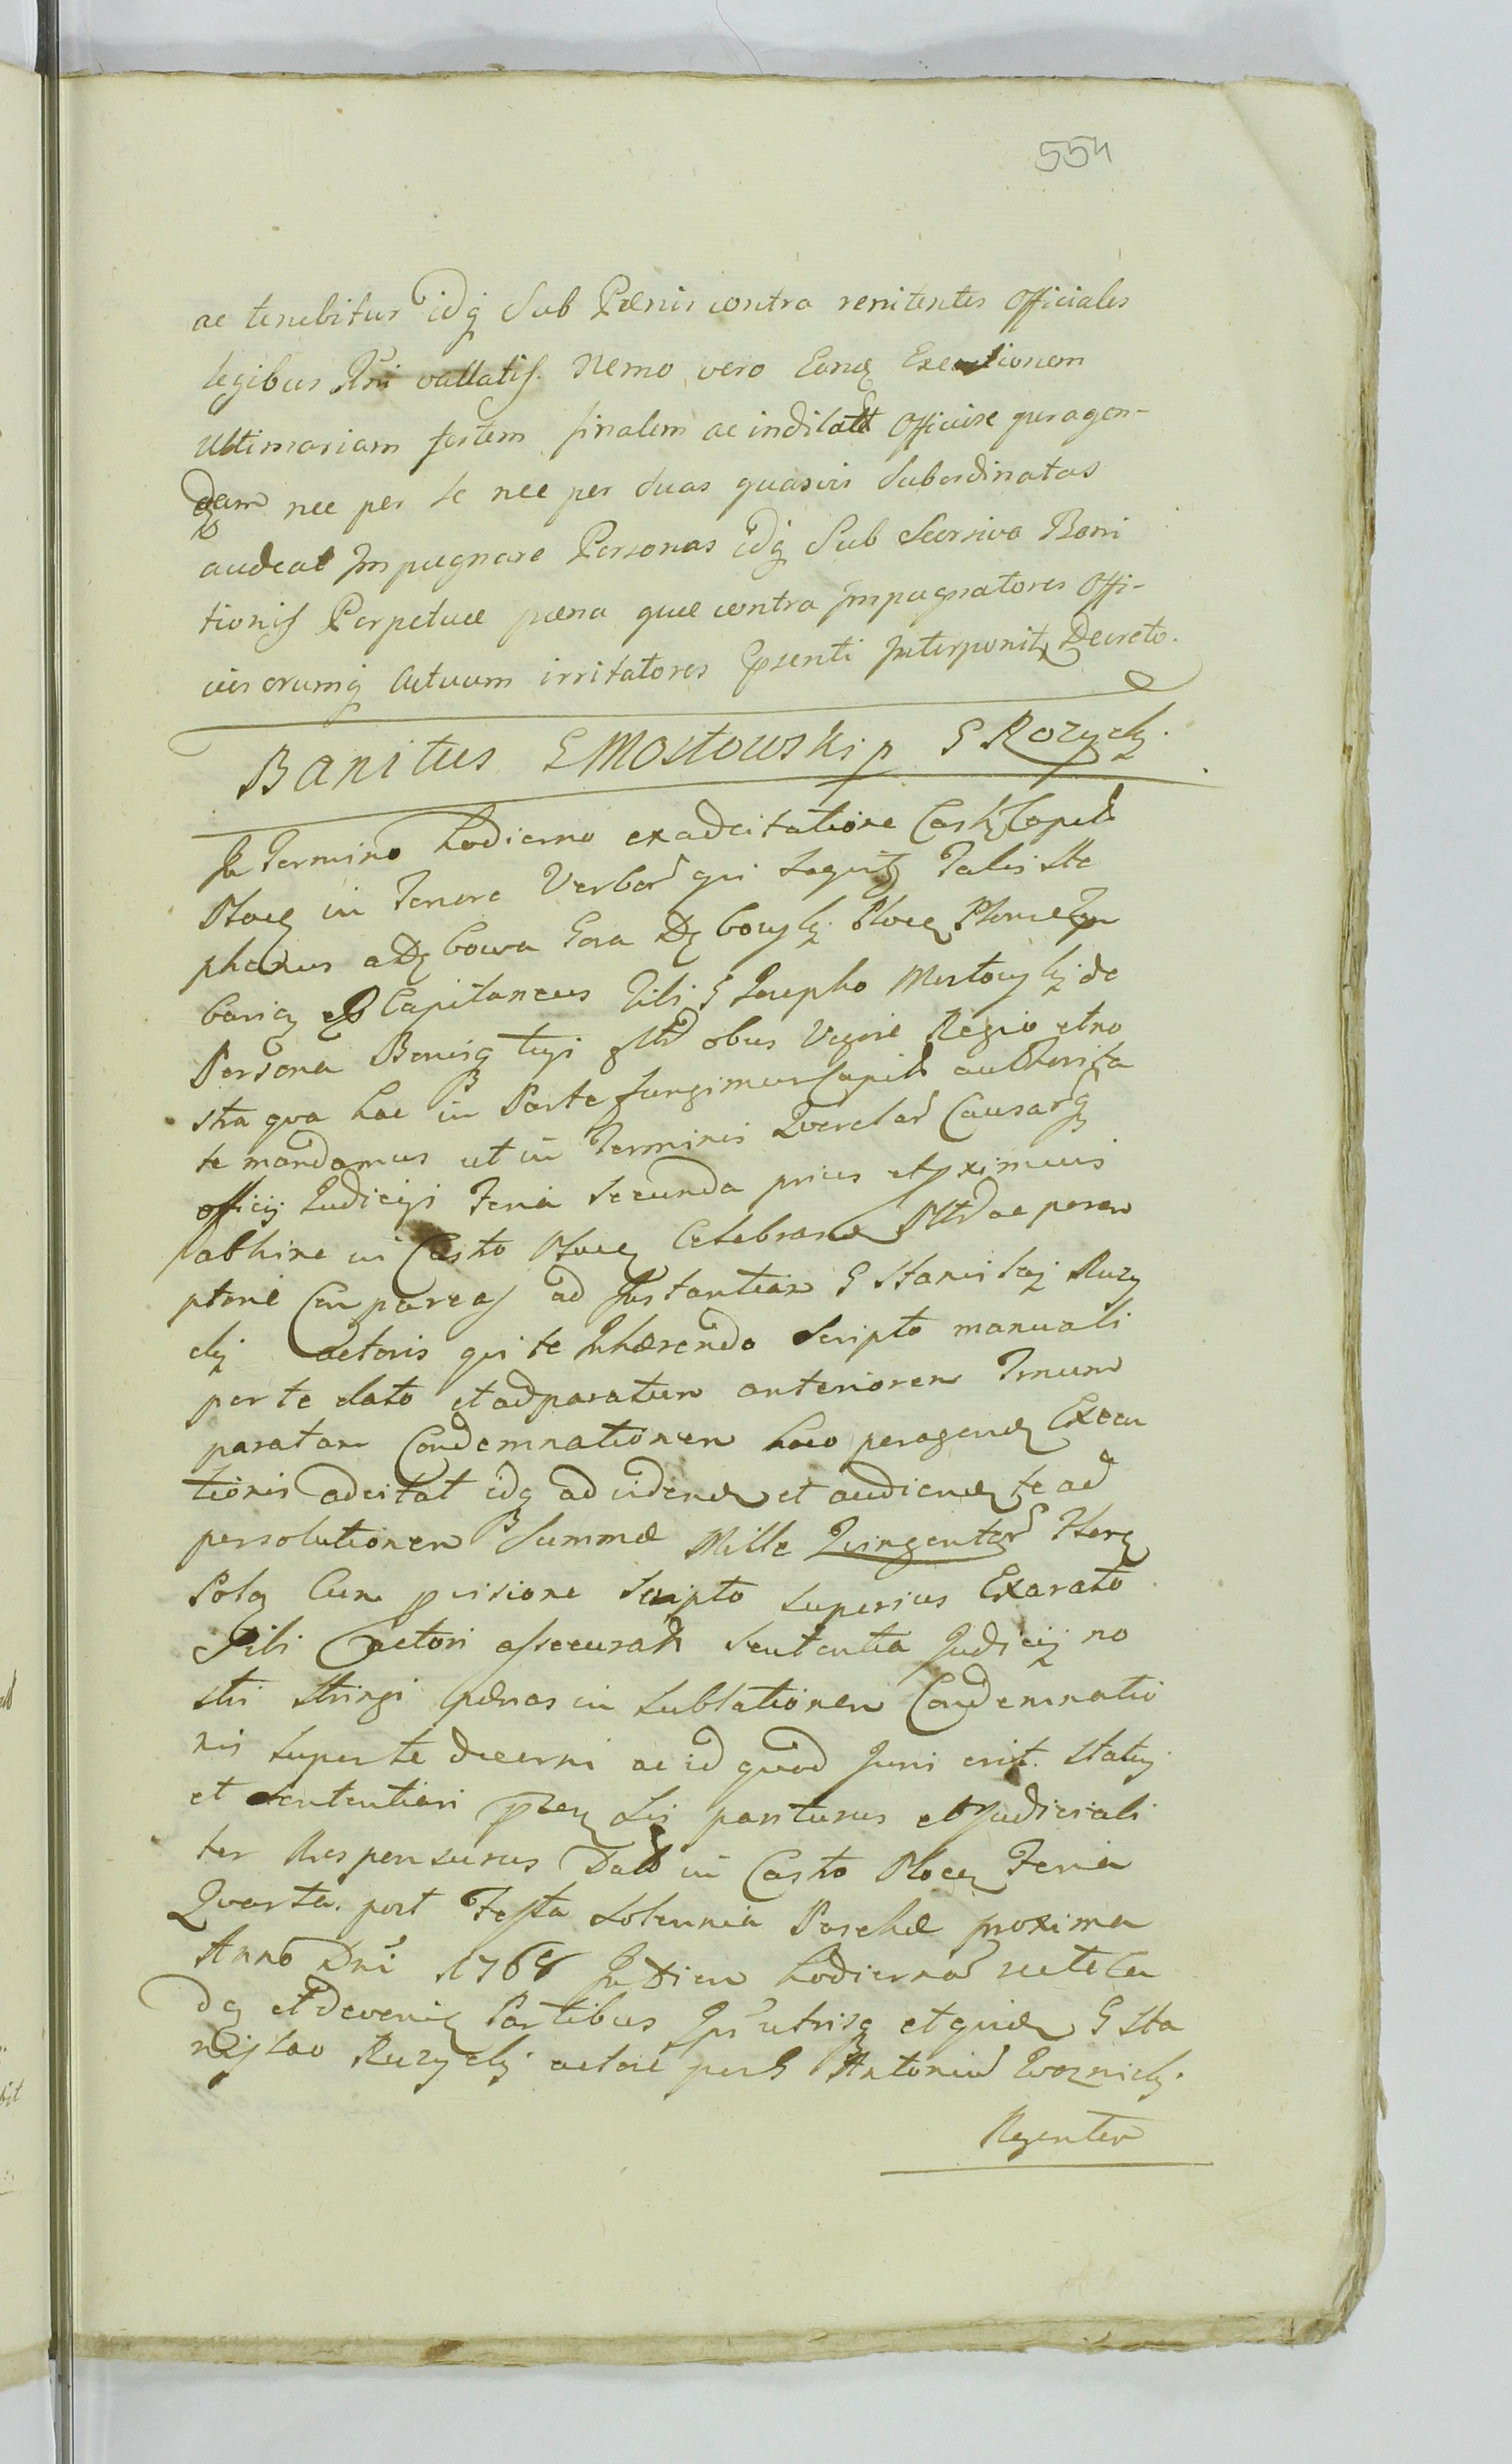 554
ac tenebitur idq sub Pænis contra renitentes Officiales
legibus Rni vallatis. Nemo vero Eandę Executionem
Ultimariam sortem finalem ac indilatē Officiose peragen-
dam nec per se nec per suas quasvis Subordinatas
audeat Impugnare Personas idq Sub Seorsiva Bani
tionis Perpetuæ pæna quæ contra Impugnatores Offi-
ciis orumq Actuum irritatores Psenti Interponitę Decreto.
Banitus G Mostowski p G Rozycky.
In Termino hodierno ex adcitatione Castr Capitli
Plocę in Tenore Verbor qui Seqvitę Talis Ste
phanus a Dębowa Gora Dębowsky Plocę
Capitaneus Tibi G Josepho Mostowsky de
Persona Bonisq tuis obus Vigore Regio et no
stra qva hac in Parte fungimur Capitli authorita
te mandamus ut in Terminis Qverelar Causarq
officij Judicijsi Feria Secunda prius et pximius
abhinc in Castro Plocę Celebrandę Pltr ac perem
ptorie Compareas ad Instantiam G Stanislaj Rozy
cky actoris qui te Inhærendo Scripto manuali
per te dato et ad paratum anteriorem Tmum
paratam Condemnationem loco peragendę Execu
tionis adcitat idq ad videndę et audiendę te ad
persolutionem Summæ Mille Quingentor Flory
Polą Cum pvisione Scripto superius Exarato
Sibi actori assecurat Sententia Judicij no
stri stringi pænas in sublationem Condemnatio
nis super te decerni ac id quod Juri erit. Statuj
et sententiari sis pariturus et Judiciali
ter Responsurus Datt in Castro Plocę Feria
Qvarta post Festa Solennia Paschæ proxima
Anno Dni 1768 In Diem hodiernā
dą et devenię Partibus Ips utrisq et quidę G Sta
nislao Rozycky actore per G Antoniū Woznicky.
Regentem